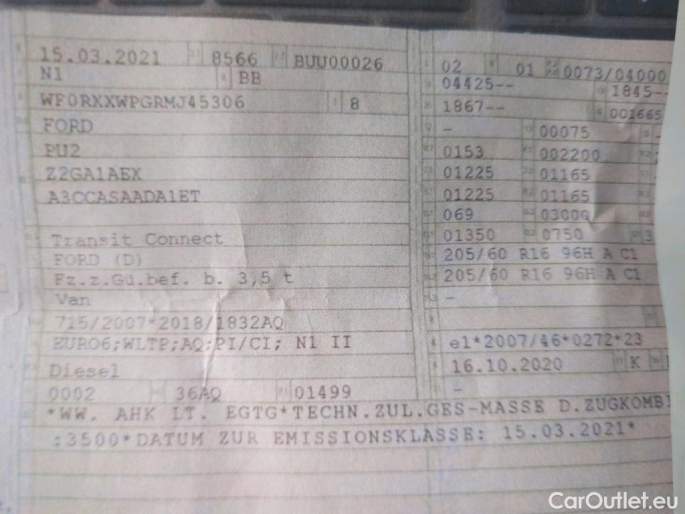 15.03.2021 8566 BUU00026
N1 BB
WF0RXXWPGRMJ45306 8
FORD
PU2
Z2GA1AEX
A3CCASAADA1ET
Transit Connect
FORD (D)
Fz.z.Gü.bef. b. 3,5 t
Van
715/2007*2018/1832AQ
EURO6;WLTP;AQ:PI/CI; N1 II
Diesel
0002 36AQ 01499
02 01 0073/04000
04425-- 1845--
1867-- 001665
- 00075 -
0153 002200
01225 01165
01225 01165
069 03000
01350 0750
205/60 R16 96H A C1
205/60 R16 96H A C1
-
e1*2007/46*0272*23
16.10.2020 K
-
*WW. AHK LT. EGTG*TECHN.ZUL.GES-MASSE D.ZUGKOMBI
:3500*DATUM ZUR EMISSIONSKLASSE: 15.03.2021*
CarOutlet.eu